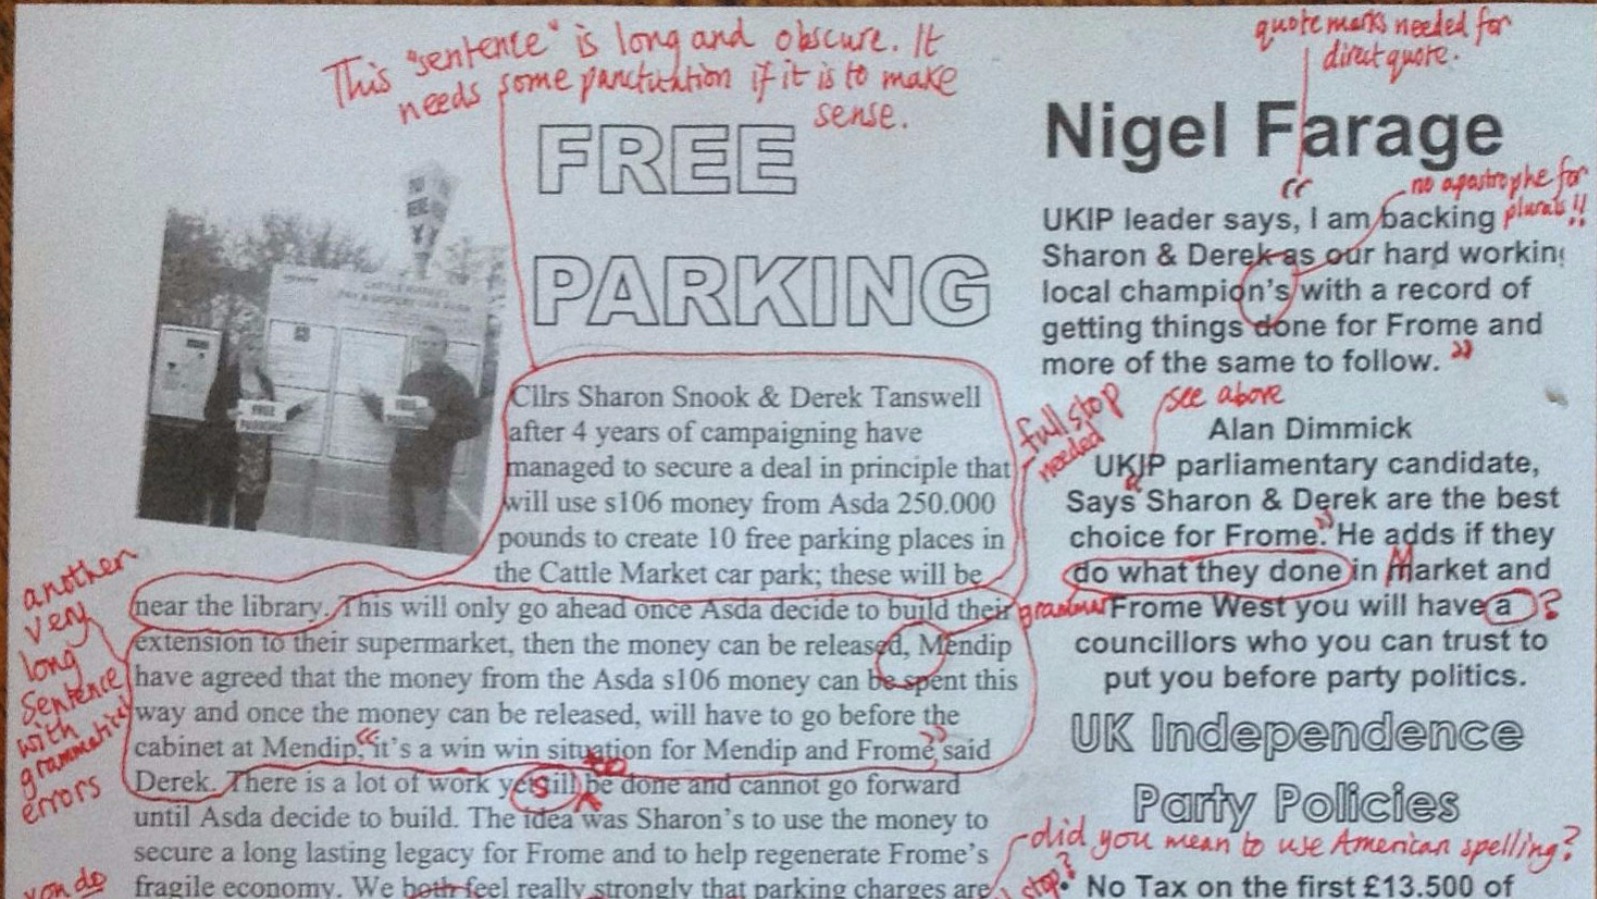 This "sentence" is long and obscure. It
needs some punctuation if it is to make
sense.
FREE
PARKING
Cllrs Sharon Snook & Derek Tanswell
after 4 years of campaigning have
managed to secure a deal in principle that
will use s106 money from Asda 250.000
pounds to create 10 free parking places in
the Cattle Market car park; these will be
near the library. This will only go ahead once Asda decide to build their
extension to their supermarket, then the money can be released, Mendip
have agreed that the money from the Asda s106 money can be spent this
way and once the money can be released, will have to go before the
cabinet at Mendip, "it's a win win situation for Mendip and Frome" said
Derek. There is a lot of work yet sill to be done and cannot go forward
until Asda decide to build. The idea was Sharon's to use the money to
secure a long lasting legacy for Frome and to help regenerate Frome's
fragile economy. We both feel really strongly that parking charges are
another
very
long
sentence
with
grammatical
errors
you do
full stop
needed
grammar
quote marks needed for
direct quote.
Nigel Farage
no apostrophe for
plurals!!
"
UKIP leader says, I am backing
Sharon & Derek as our hard working
local champion's with a record of
getting things done for Frome and
more of the same to follow. "
see above
Alan Dimmick
UKIP parliamentary candidate,
Says "Sharon & Derek are the best
choice for Frome." He adds if they
do what they done in Market and
Frome West you will have a ?
councillors who you can trust to
put you before party politics.
UK Independence
Party Policies
did you mean to use American spelling?
stop?
• No Tax on the first £13.500 of